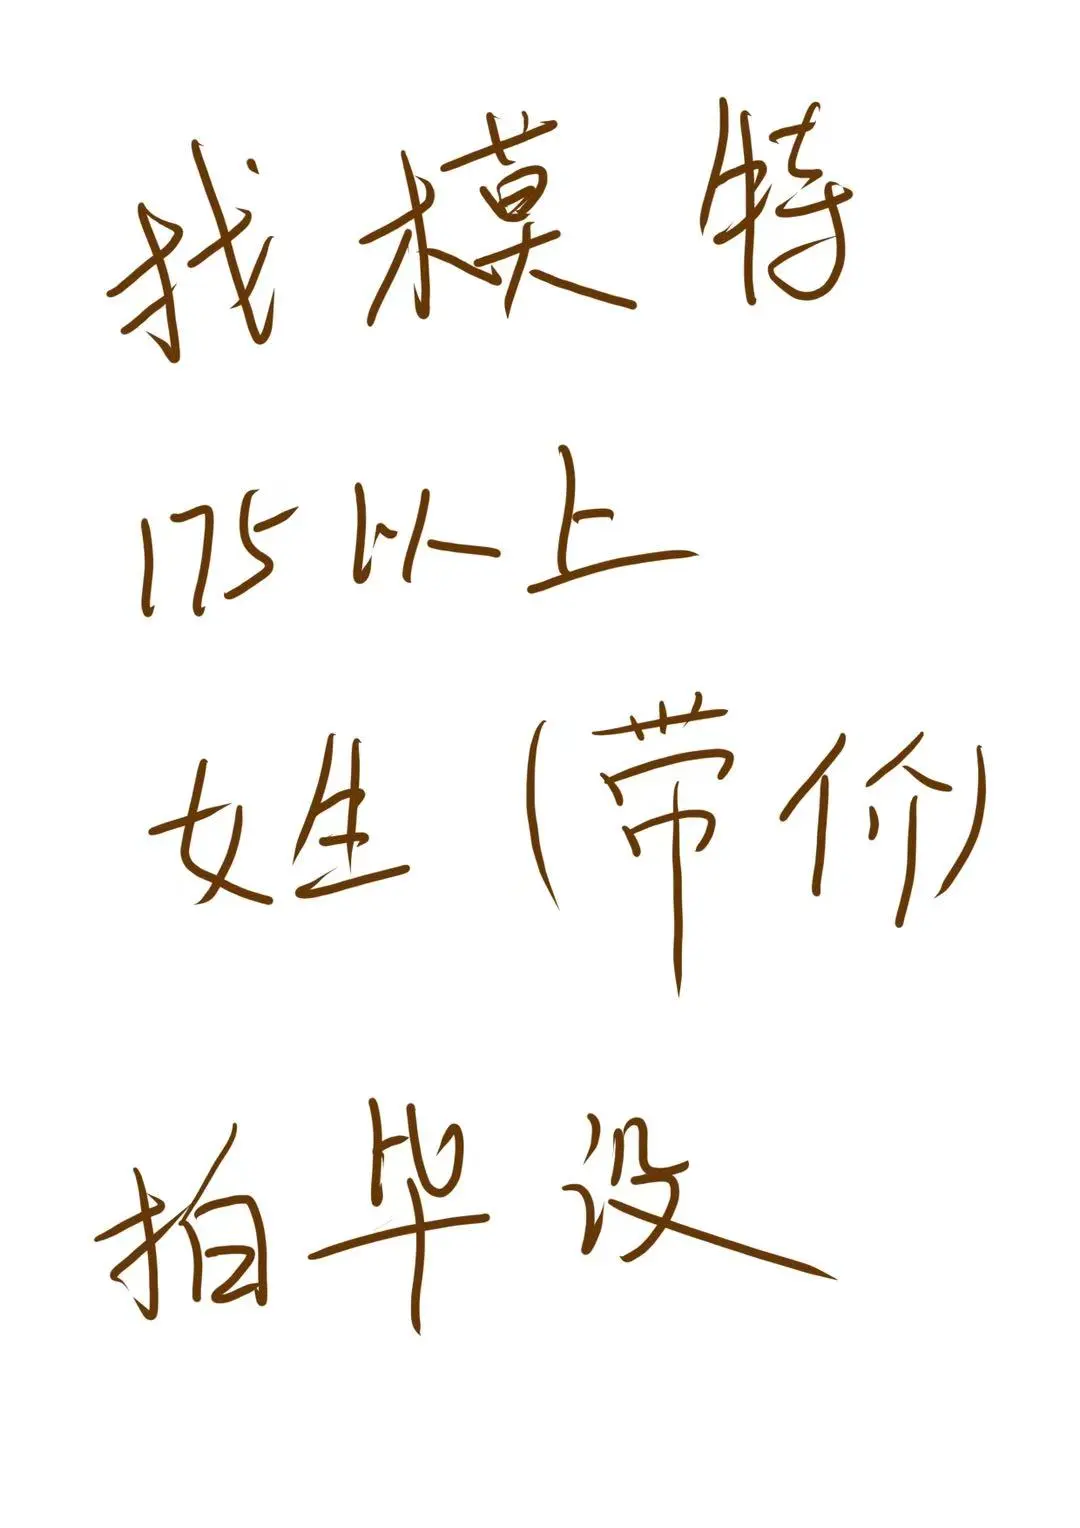 找模特
175以上
女生(带价)
拍毕设